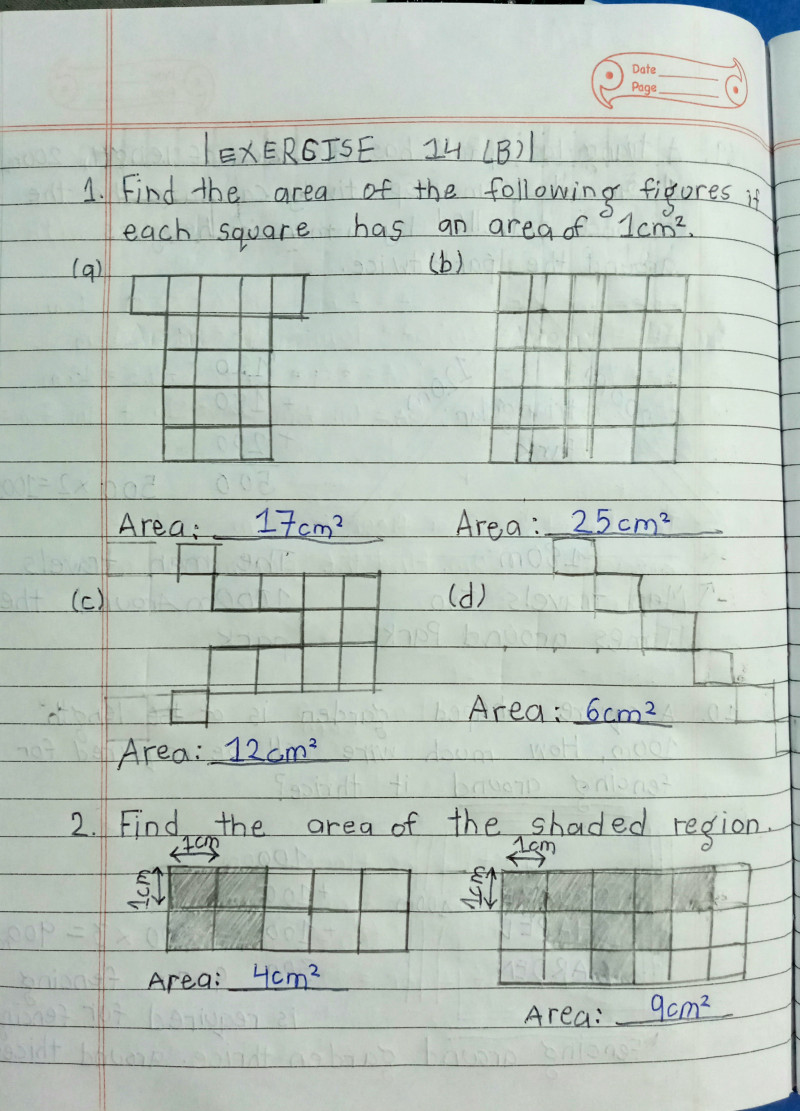 Date
Page
EXERCISE 14 (B)
1. Find the area of the following figures if
each square has an area of 1cm².
(a)
(b)
Area: 17cm²
Area: 25cm²
(c)
(d)
Area: 6cm²
Area: 12cm²
2. Find the area of the shaded region.
1cm
1cm
1cm
1cm
Area: 4cm²
Area: 9cm²